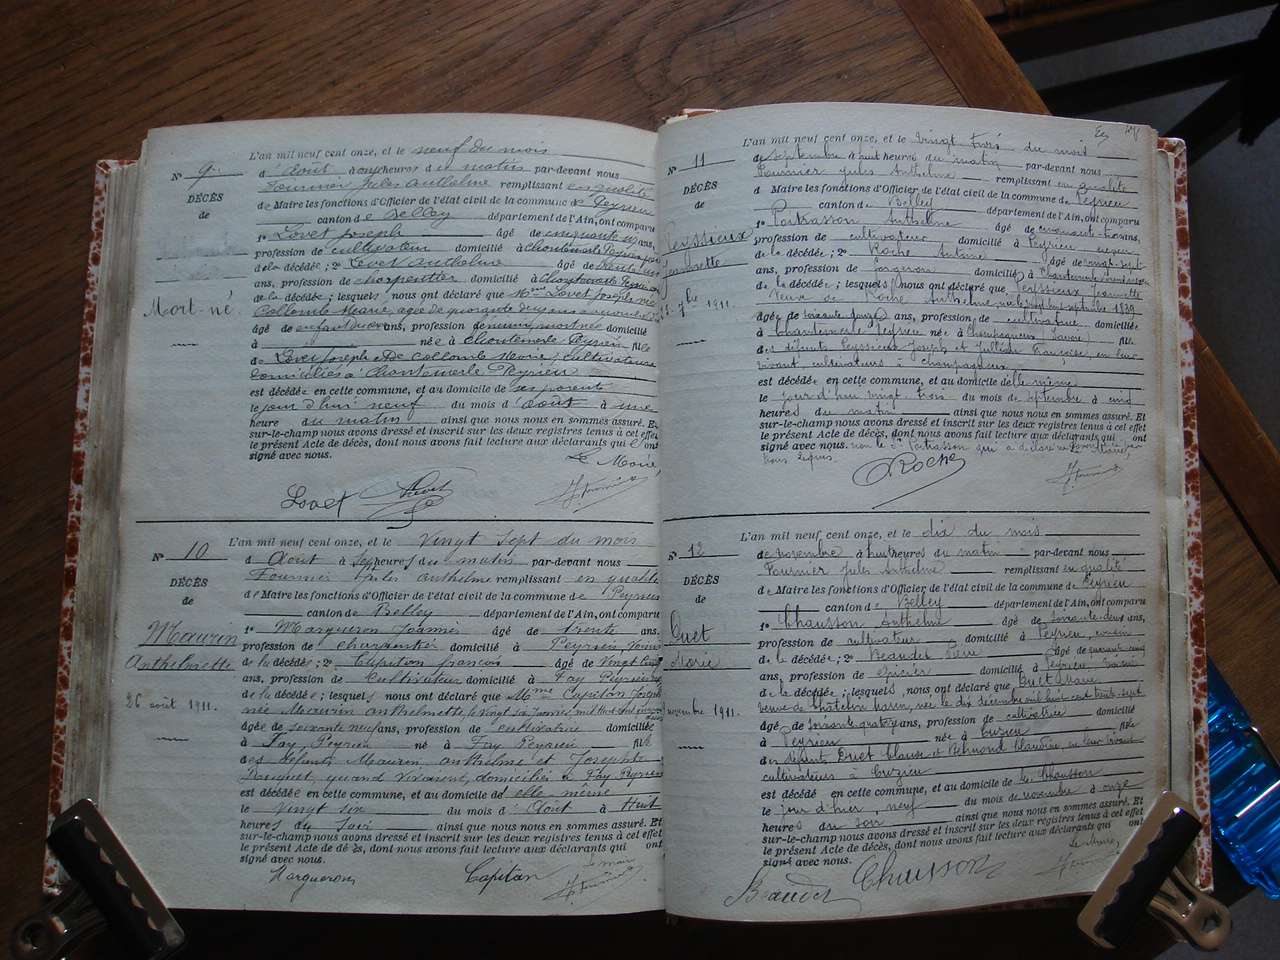 L'an mil neuf cent onze, et le neuf du mois
N° 9
d'Août à onze heures du matin par-devant nous
DÉCÈS
Fournier Jules Anthelme remplissant en qualité
de
de Maire les fonctions d'Officier de l'état civil de la commune de Peyrieu
canton de Belley département de l'Ain, ont comparu
1° Lovet Joseph âgé de cinquante ans,
profession de cultivateur domicilié à Chantemerle Peyrieu
de la décédée ; 2° Lovet Anthelme âgé de
ans, profession de charpentier domicilié à Chantemerle Peyrieu
Mort-né
de la décédée ; lesquels nous ont déclaré que Mme Lovet Joseph née
Collomb Marie, agée de quarante
âgé de enfant ans, profession de domicilié
à née à Chantemerle Peyrieu fils
de Lovet Joseph et de Collomb Marie, cultivateurs
domiciliés à Chantemerle Peyrieu
est décédée en cette commune, et au domicile de ses parents
le jour d'hui neuf du mois d'Août à une
heure du matin ainsi que nous nous en sommes assuré. Et
sur-le-champ nous avons dressé et inscrit sur les deux registres tenus à cet effet
le présent Acte de décès, dont nous avons fait lecture aux déclarants qui ont
signé avec nous.
Le Maire
Lovet Lovet Fournier
L'an mil neuf cent onze, et le vingt sept du mois
N° 10
d'Août à sept heures du matin par-devant nous
DÉCÈS
Fournier Jules anthelme remplissant en qualité
de
de Maire les fonctions d'Officier de l'état civil de la commune de Peyrieu
canton de Belley département de l'Ain, ont comparu
Maurin
1° Marqueron Joannès âgé de trente ans,
Anthelmette
profession de charpentier domicilié à Peyrieu
de la décédée ; 2° Capitan françois âgé de vingt cinq
ans, profession de Cultivateur domicilié à Fay Peyrieu
26 août 1911.
de la décédée ; lesquels nous ont déclaré que Mme Capitan Joseph
née Maurin anthelmette, le vingt six Janvier mil huit cent
âgée de soixante neuf ans, profession de cultivatrice domiciliée
à Fay Peyrieu né à Fay Peyrieu fille
des défunts Maurin anthelme et Josephte
Douquet, quand vivaient, domiciliés à Fay Peyrieu
est décédée en cette commune, et au domicile de elle même
le vingt six du mois d'Août à Huit
heures du soir ainsi que nous nous en sommes assuré. Et
sur-le-champ nous avons dressé et inscrit sur les deux registres tenus à cet effet
le présent Acte de décès, dont nous avons fait lecture aux déclarants qui ont
signé avec nous.
Le maire
Marqueron Capitan Fournier
L'an mil neuf cent onze, et le vingt trois du mois
N° 11
de septembre à huit heures du matin par-devant nous
DÉCÈS
Fournier Jules Anthelme remplissant en qualité
de
de Maire les fonctions d'Officier de l'état civil de la commune de Peyrieu
canton de Belley département de l'Ain, ont comparu
Peyssieux
1° Portrasson Anthelme âgé de ans,
Jeannette
profession de cultivateur domicilié à Peyrieu
de la décédée ; 2° Roche Antoine âgé de vingt sept
ans, profession de forgeron domicilié à Chantemerle
7bre 1911.
de la décédée ; lesquels nous ont déclaré que Peyssieux Jeannette
veuve de Roche Anthelme née le septembre 1839
âgée de soixante douze ans, profession de cultivatrice domiciliée
à Chantemerle Peyrieu née à Champagneux Savoie fille
des défunts Peyssieux Joseph et Jullian Françoise, en leur
vivant, cultivateurs à Champagneux
est décédée en cette commune, et au domicile d'elle même
le jour d'hui vingt trois du mois de septembre à cinq
heures du matin ainsi que nous nous en sommes assuré. Et
sur-le-champ nous avons dressé et inscrit sur les deux registres tenus à cet effet
le présent Acte de décès, dont nous avons fait lecture aux déclarants qui ont
signé avec nous. non le sr Portrasson qui a déclaré ne
Le Maire,
A. Roche Fournier
L'an mil neuf cent onze, et le dix du mois
N° 12
de novembre à huit heures du matin par-devant nous
DÉCÈS
Fournier Jules Anthelme remplissant en qualité
de
de Maire les fonctions d'Officier de l'état civil de la commune de Peyrieu
canton de Belley département de l'Ain, ont comparu
Duet
1° Chausson Anthelme âgé de soixante deux ans,
Marie
profession de cultivateur domicilié à Peyrieu, voisin
de la décédée ; 2° Beaudet Père âgé de
ans, profession de épicier domicilié à Peyrieu voisin
novembre 1911.
de la décédée ; lesquels nous ont déclaré que Duet Marie
veuve de née le dix décembre mil huit cent trente sept
âgée de soixante quatorze ans, profession de cultivatrice domiciliée
à Peyrieu née à Cuzieu fille
des défunts Duet Claude et Reymond Claudine, en leur vivant
cultivateurs à Cuzieu
est décédé en cette commune, et au domicile de Sr Chausson
le jour d'hier neuf du mois de novembre à onze
heures du soir ainsi que nous nous en sommes assuré. Et
sur-le-champ nous avons dressé et inscrit sur les deux registres tenus à cet effet
le présent Acte de décès, dont nous avons fait lecture aux déclarants qui ont
signé avec nous.
Le Maire,
Beaudet Chausson Fournier